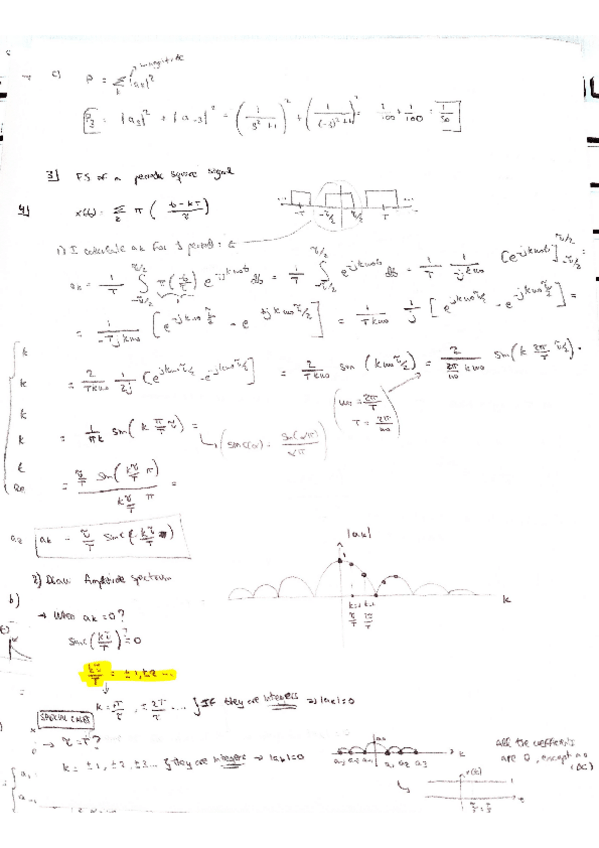 c) P = Σ_k |a_k|² → magnitude
P_3 = |a_3|² + |a_-3|² = (1/(3²+1))² + (1/((-3)²+1))² = 1/100 + 1/100 = 1/50
3) FS of a periodic square signal
4) x(t) = Σ_k π((t-kT)/τ)
-T -τ/2 τ/2 T
1) I calculate ak for 1 period:
ak = 1/T ∫_{-τ/2}^{τ/2} π(t/τ) e^{-jkω0t} dt = 1/T ∫_{-τ/2}^{τ/2} e^{-jkω0t} dt = 1/T · 1/(-jkω0) [e^{-jkω0t}]_{-τ/2}^{τ/2} =
= 1/(-Tjkω0) [e^{-jkω0 τ/2} - e^{+jkω0 τ/2}] = 1/(Tkω0) 1/j [e^{jkω0 τ/2} - e^{-jkω0 τ/2}] =
= 2/(Tkω0) 1/2j [e^{jkω0 τ/2} - e^{-jkω0 τ/2}] = 2/(Tkω0) sin(kω0 τ/2) = 2/((2π/ω0) kω0) sin(k 2π/T τ/2) =
= 1/(πk) sin(k π/T τ) = (sinc(α) = sin(απ)/απ) (ω0 = 2π/T T = 2π/ω0)
= (τ/T sin(kτ/T π))/(kτ/T π) =
ak = τ/T sinc(kτ/T)
|ak|
2) Draw Amplitude spectrum
k
→ When ak = 0?
sinc(kτ/T) = 0
kτ/T = ±1, ±2 ...
k = T/τ, = 2T/τ ... } If they are integers ⇒ |ak| = 0
SPECIAL CASES
→ τ = T?
k = ±1, ±2, ±3... if they are integers → |ak| = 0
All the coefficients
are 0, except a0
(DC)
x(t)